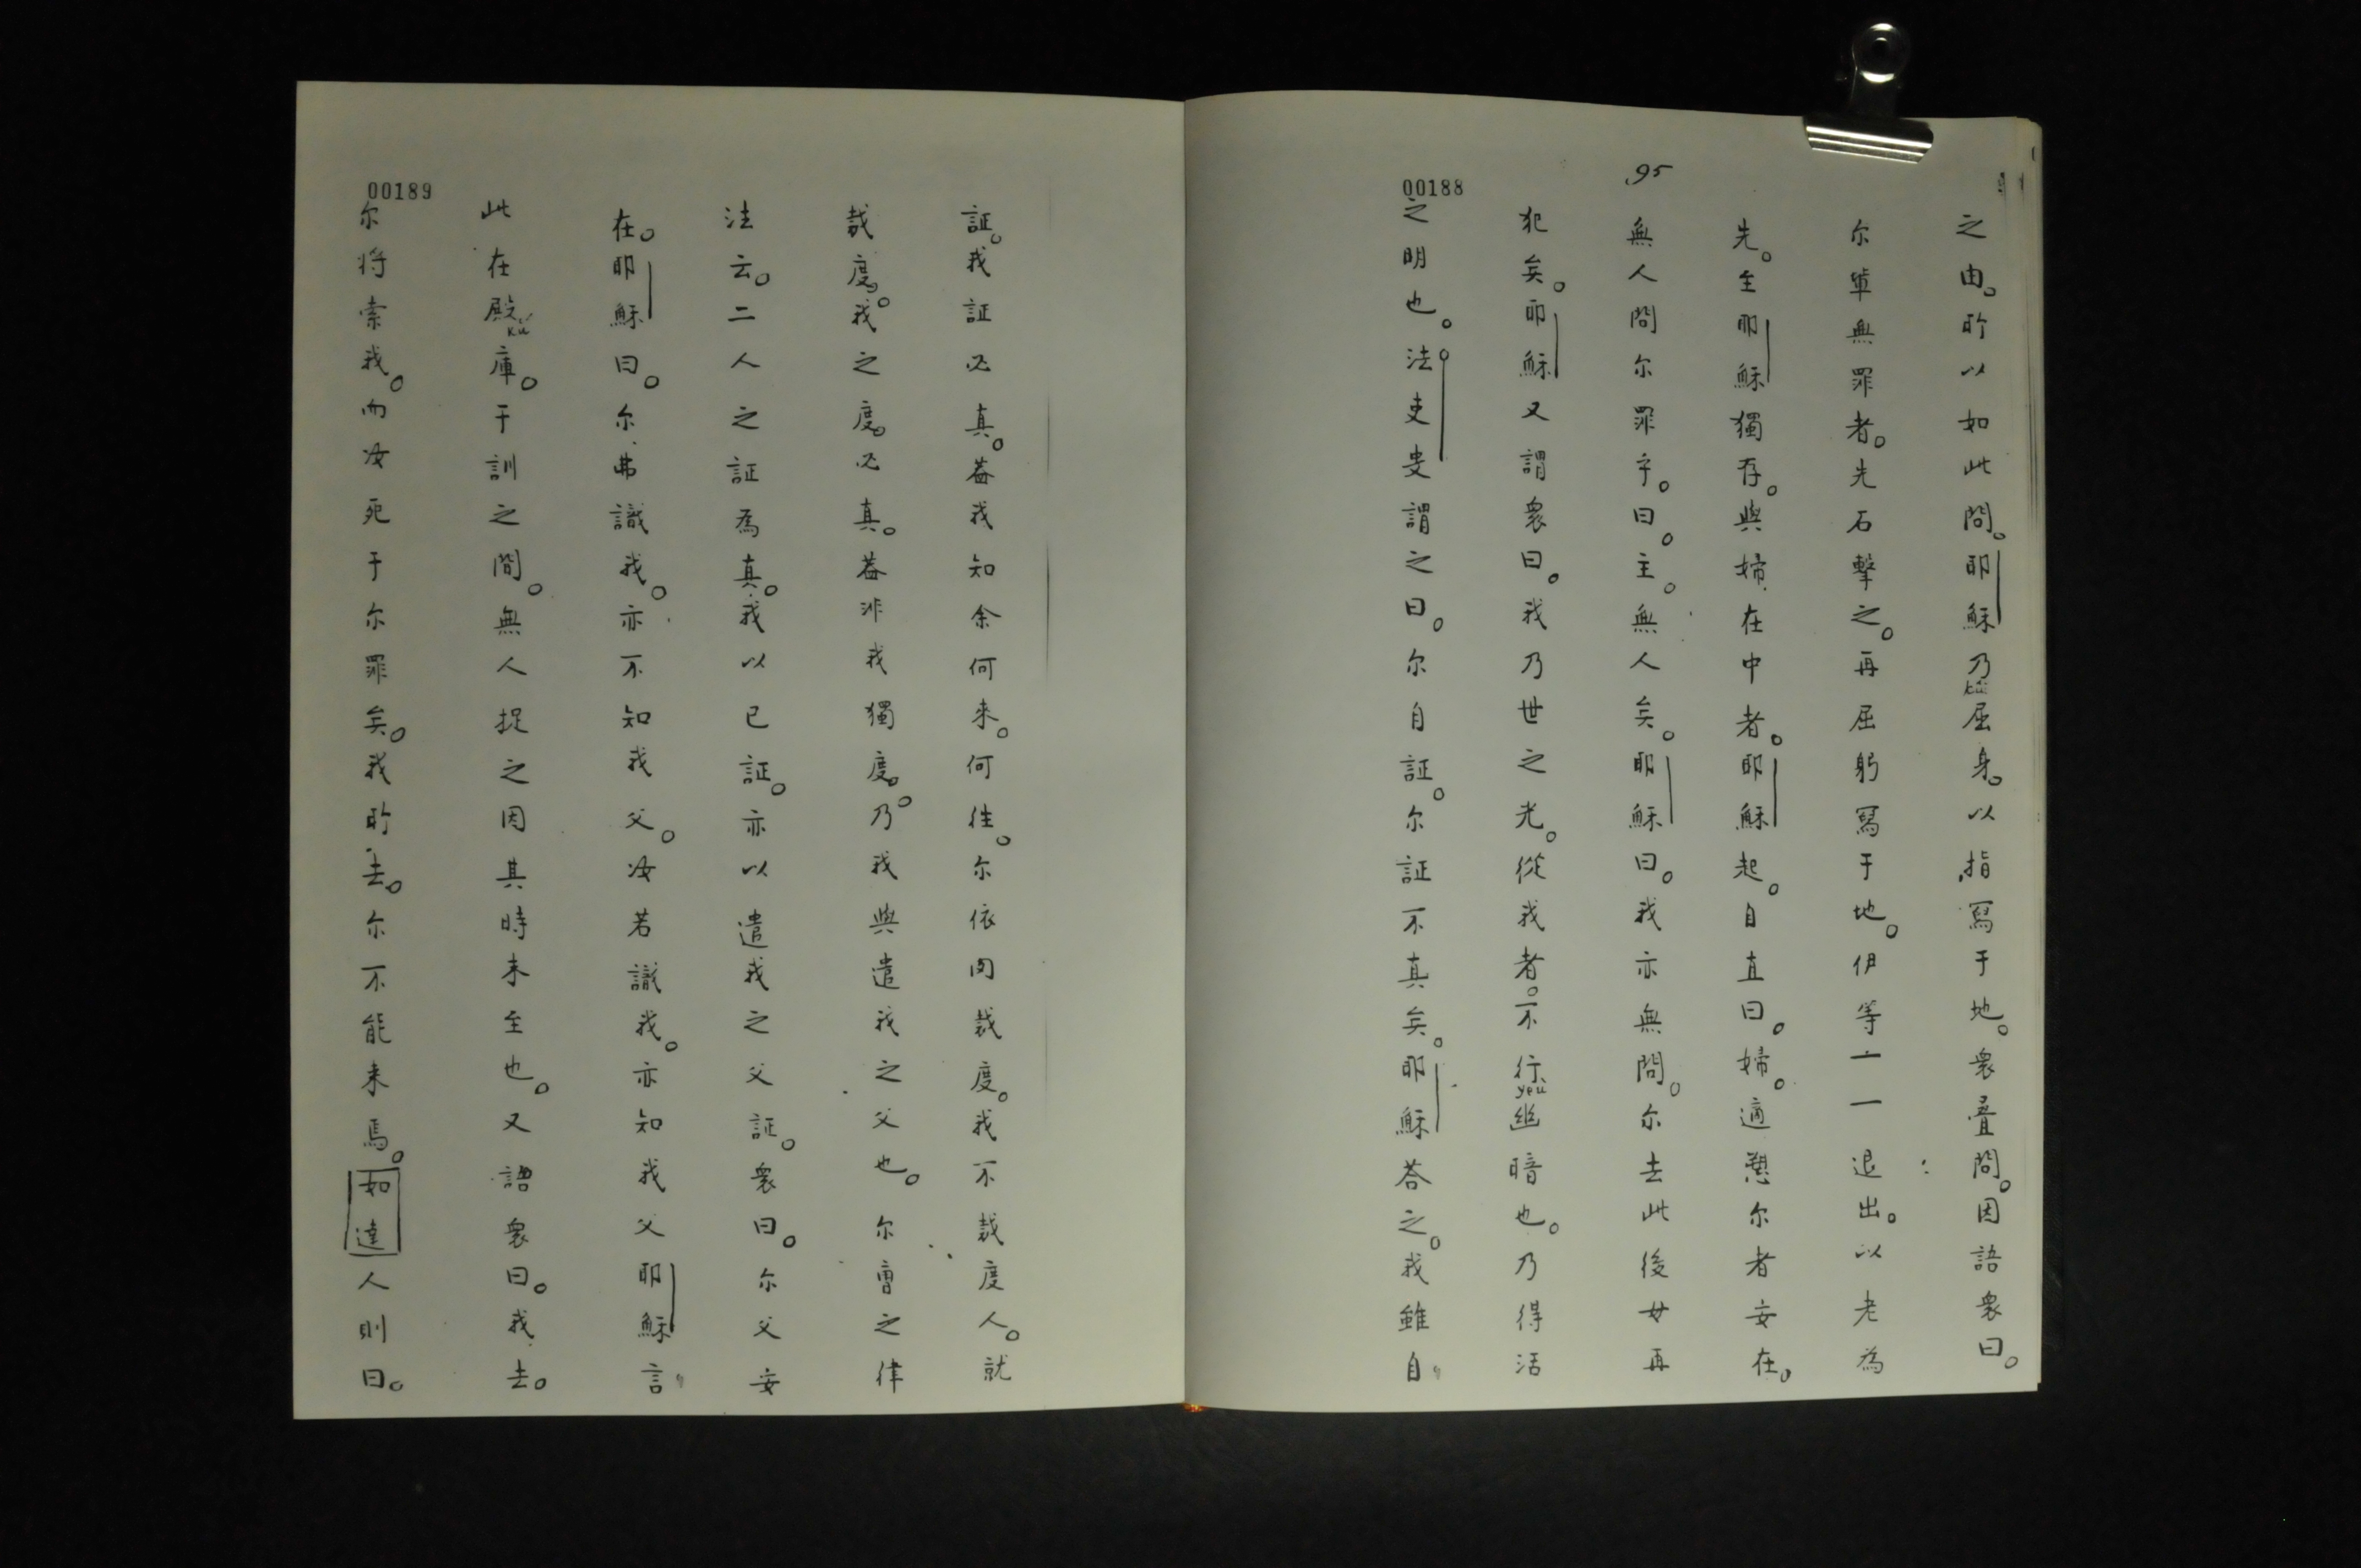 之由。所以如此問。耶穌乃屈身。以指寫于地。衆疊問。因語衆曰。
尔軰無罪者。先石擊之。再屈躬寫于地。伊等一一退出。以老為
先。至耶穌獨存。與婦在中者。耶穌起。自直曰。婦。適愬尔者安在。
95
無人問尔罪乎。曰。主。無人矣。耶穌曰。我亦無問。尔去此後女再
犯矣。耶穌又謂衆曰。我乃世之光。從我者。不行幽暗也。乃得活
yeú
00188
之明也。法吏叟謂之曰。尔自証。尔証不真矣。耶穌荅之。我雖自
証。我証必真。葢我知余何來。何徃。尔依肉裁度。我不裁度人。就
裁度。我之度。必真。葢非我獨度。乃我與遣我之父也。尔曹之律
法云。二人之証為真。我以已証。亦以遣我之父証。衆曰。尔父安
在。耶穌曰。尔弗識我。亦不知我父。汝若識我。亦知我父耶穌言
此在殿庫。于訓之間。無人捉之因其時未至也。又語衆曰。我去。
kú
00189
尔将索我。而汝死于尔罪矣。我所去。尔不能来焉。如達人則曰。